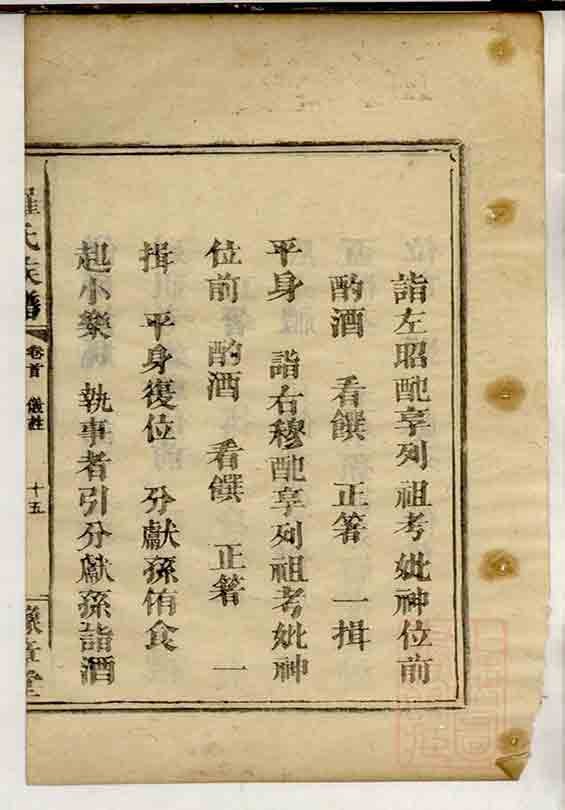 詣左昭配享列祖考妣神位前
酌酒 看饌 正箸 一揖
平身 詣右穆配享列祖考妣神
位前 酌酒 看饌 正箸 一
揖 平身復位 分獻孫侑食
起小樂 執事者引分獻孫詣酒
羅氏族譜 卷首 儀註 十五 豫章堂